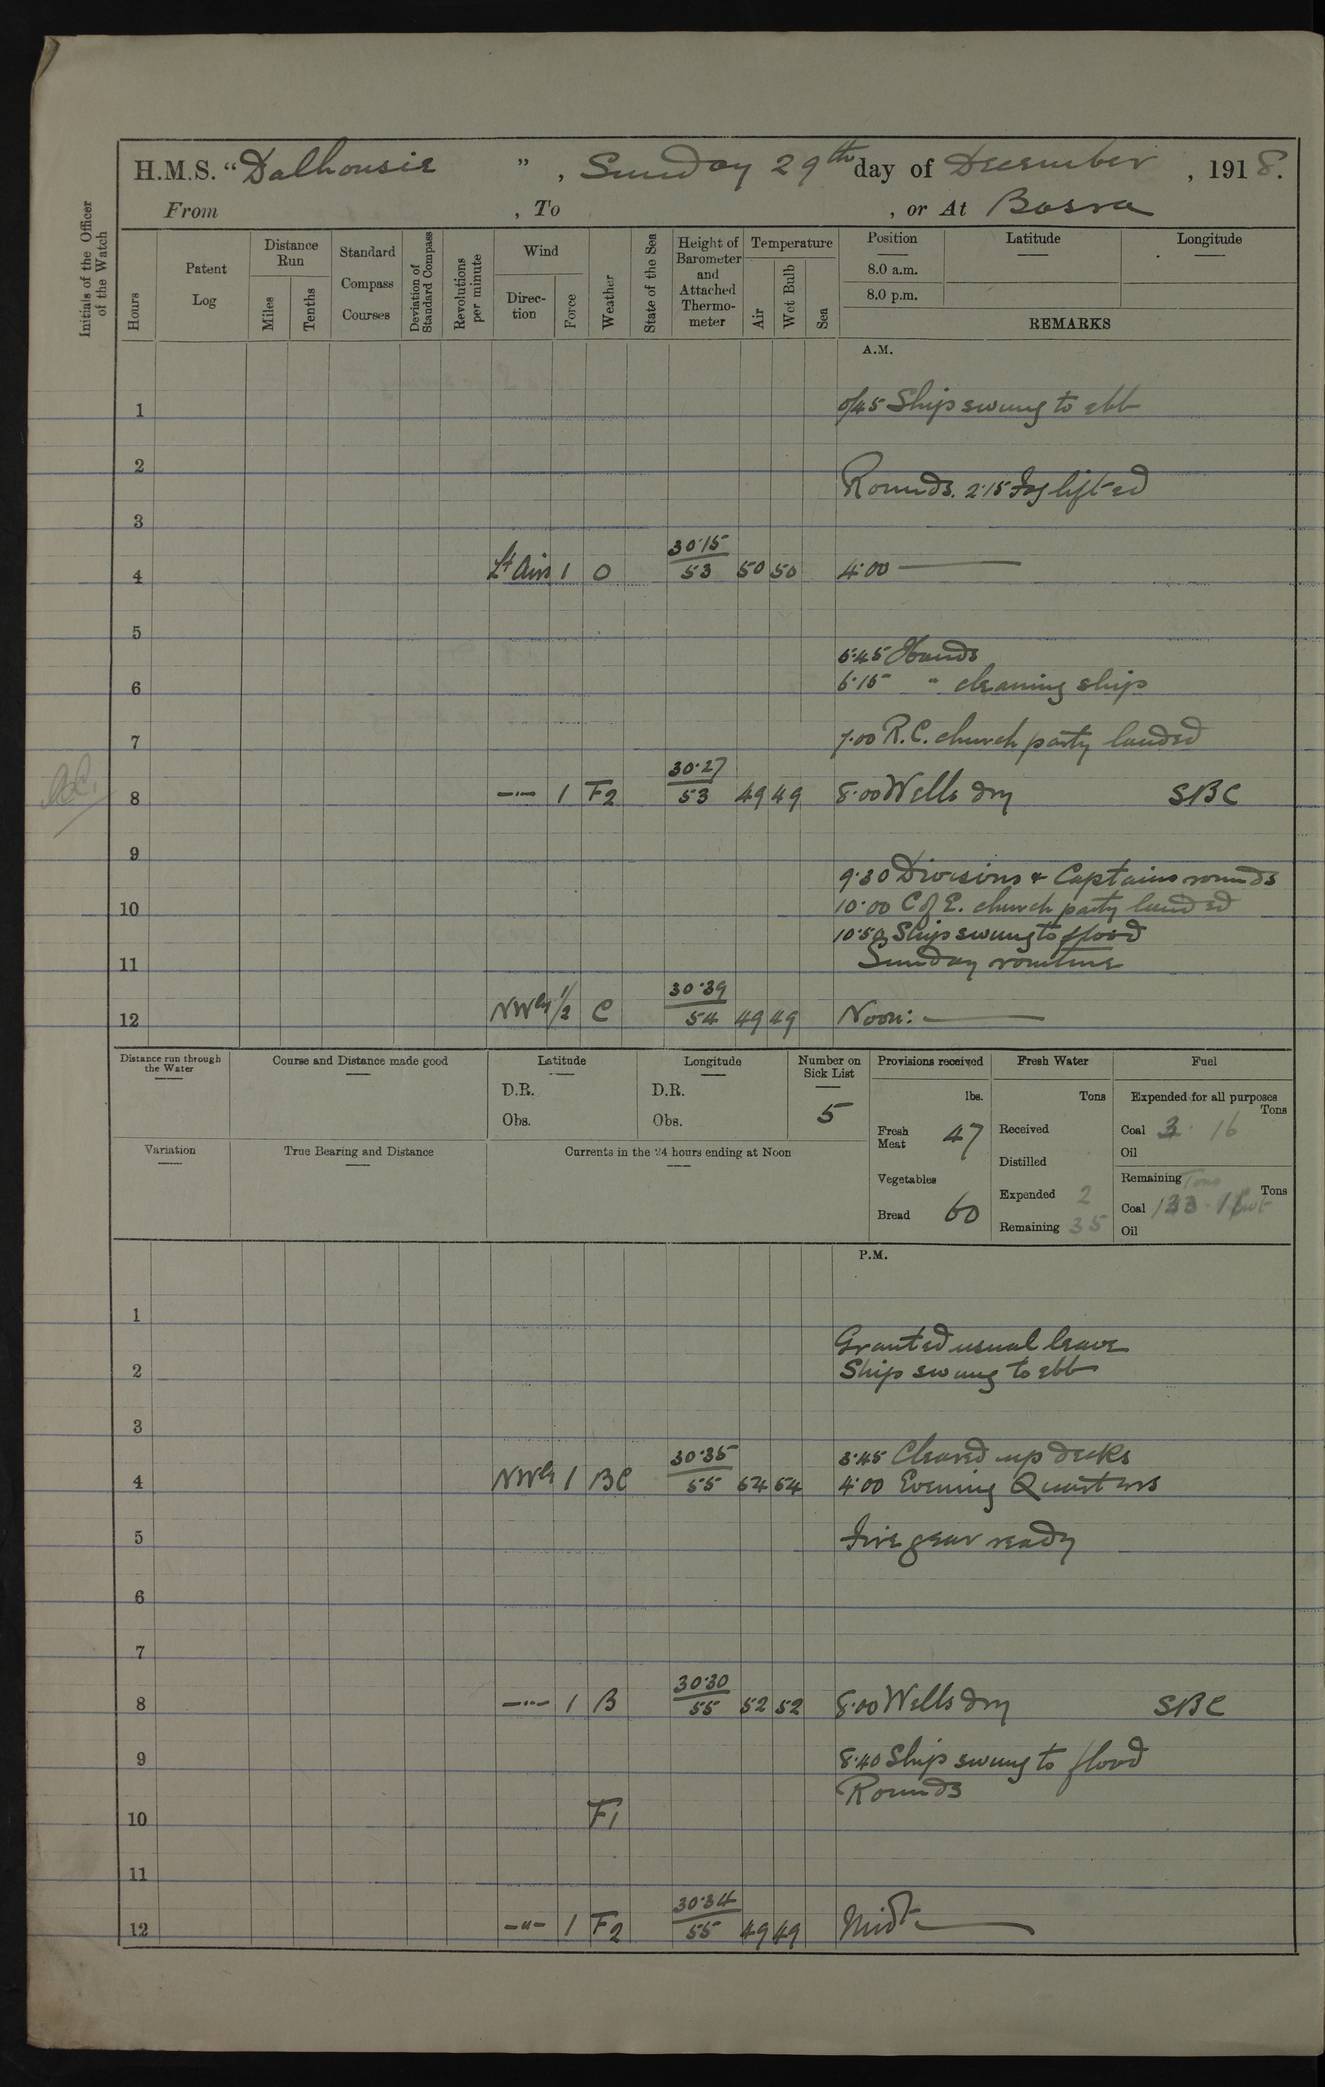 H.M.S. “Dalhousie ”, Sunday 29th day of December, 1918.
From , To , or At Basra
Initials of the Officer of the Watch
Hours
Patent Log
Distance Run
Miles
Tenths
Standard Compass Courses
Deviation of Standard Compass
Revolutions per minute
Wind
Direction
Force
Weather
State of the Sea
Height of Barometer and Attached Thermometer
Temperature
Air
Wet Bulb
Sea
Position
8.0 a.m.
8.0 p.m.
Latitude
Longitude
REMARKS
A.M.
1 0/45 Ship swung to ebb
2
Rounds. 2.15 Fog lifted
3
30.15
4 Lt Airs 1 O 53 50 50 4.00 —
5
5.45 Hands
6 6.15 " cleaning ship
7 7.00 R.C. church party landed
30.27
8 —"— 1 F2 53 49 49 8.00 Wells dry SBC
9
9.30 Divisions & Captains rounds
10 10.00 C of E. church party landed
10.50 Ship swung to flood
11 Sunday routine
30.39
12 NWly 1/2 C 54 49 49 Noon: —
Distance run through the Water
Course and Distance made good
Latitude
D.R.
Obs.
Longitude
D.R.
Obs.
Number on Sick List
5
Provisions received
lbs.
Fresh Meat 47
Vegetables
Bread 60
Fresh Water
Tons
Received
Distilled
Expended 2
Remaining 35
Fuel
Expended for all purposes
Tons
Coal 3. 16
Oil
Remaining Tons
Tons
Coal 133.
Oil
Variation
True Bearing and Distance
Currents in the 24 hours ending at Noon
P.M.
1
Granted usual leave
2 Ship swung to ebb
3
30.35 3.45 Cleared up decks
4 NWly 1 BC 55 54 54 4.00 Evening Quarters
5 Fire gear ready
6
7
30.30
8 —"— 1 B 55 52 52 8.00 Wells dry SBC
9 8.40 Ship swung to flood
Rounds
10 F1
11
30.34
12 —"— 1 F2 55 49 49 Midt —